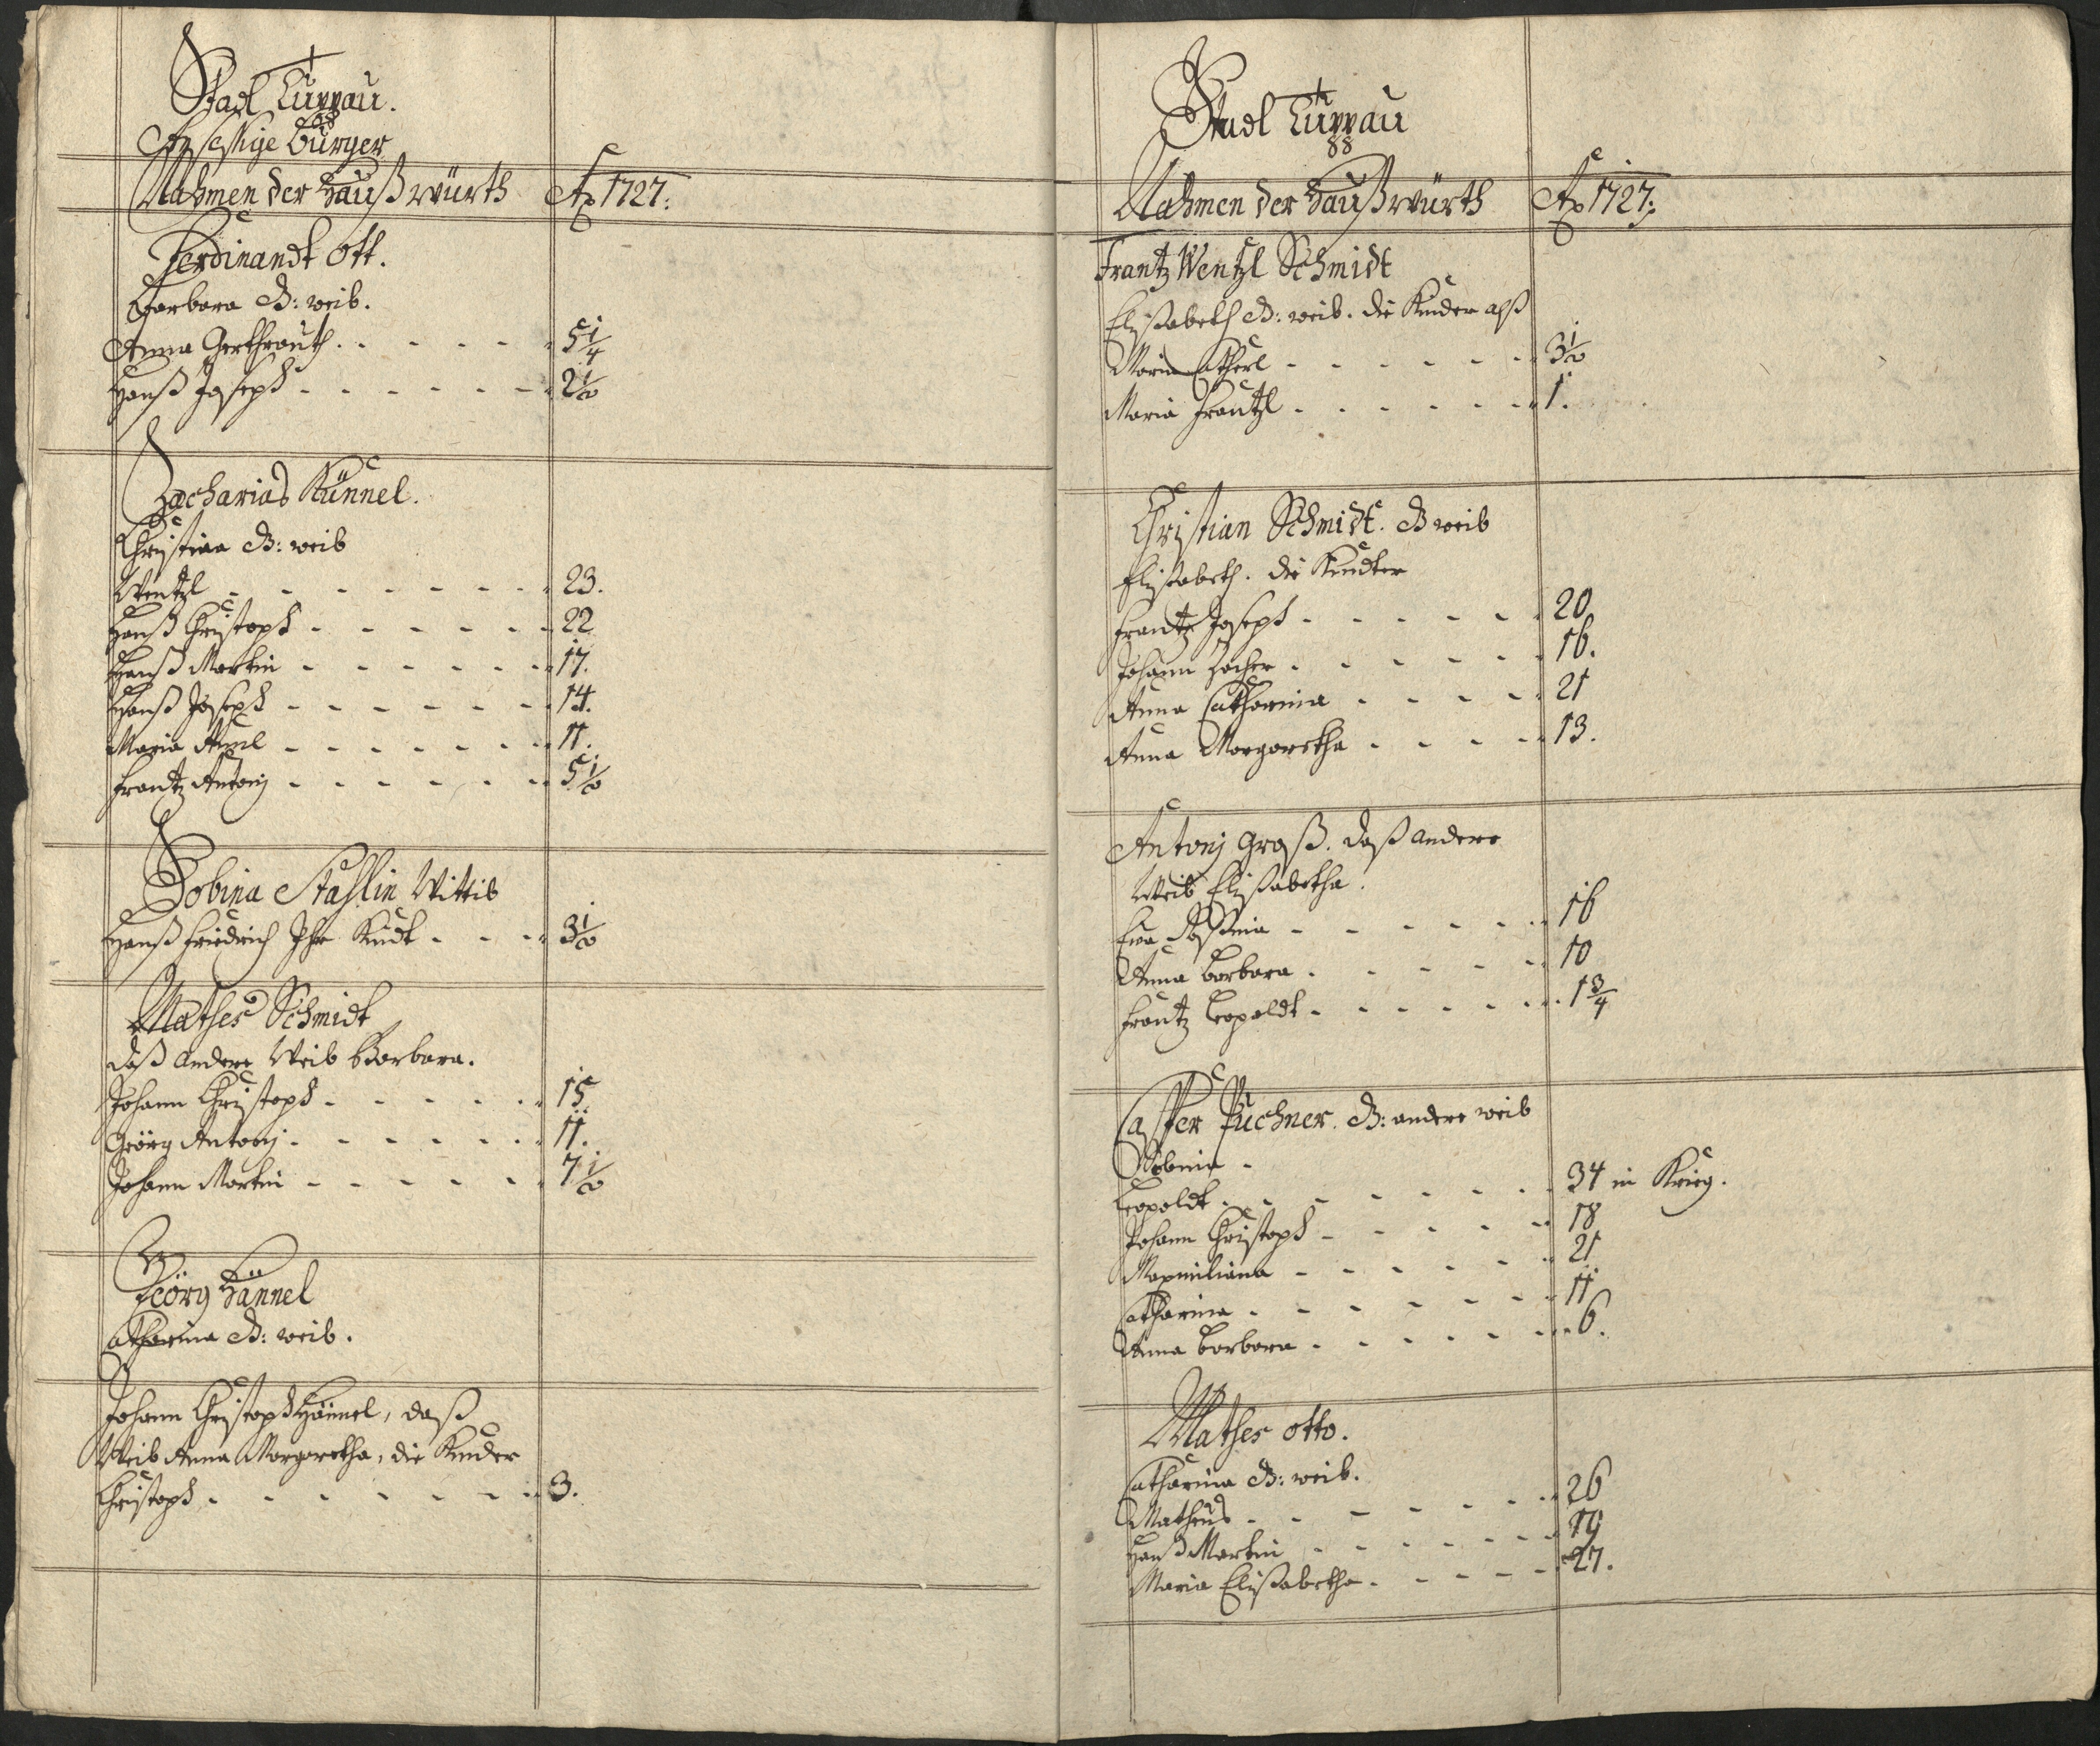 Stadt Luppau.
Ansessige Bürger
Nahmen der Haußwürth Ao 1727:
Ferdinandt Ott.
Barbara d: weib.
Anna Gerthrauth. 5 1/4
Hanß Joseph 2 1/2
Zacharias Künnel.
Christina d: weib
Wentzl 23.
Hanß Christoph 22
Hanß Martin 17.
Hanß Joseph 14.
Maria Annl 11.
Frantz Antonj 5 1/2
Sobina Stahlin Wittib
Hanß Friedrich Ihr Kindt 3 1/2
Mathes Schmidt
daß andere Weib Barbara.
Johann Christoph 15.
Geörg Antonj 11.
Johann Martin 7 1/2
Geörg Hännel
Catharina d: weib.
Johann Christoph Hännel, daß
Weib Anna Margaretha, die Kinder
Christoph 3.
Stadt Luppau
Nahmen der Haußwürth Ao 1727:
Frantz Wentzl Schmidt
Elisabeth d: weib. die Kinder alß
Maria Catherl 3 1/2
Maria Frantzl 1.
Christian Schmidt. d weib
Elisabeth. die Kindter
Frantz Joseph 20.
Johann Zacher 16.
Anna Catharina 21
Anna Margaretha 13.
Antonj Groß. daß andere
Weib Elisabetha.
Eva Rosina 16
Anna Barbara 10
Frantz Leopoldt 1 3/4
Casper Puchner. d: andere weib
Sabina
Leopoldt 34 in Krieg.
Johann Christoph 18
Maxmiliana 21
Catharina 11
Anna Barbara 6.
Mathes Otto.
Catharina d: weib.
Matheus 26
Hanß Martin 19
Maria Elisabetha 27.